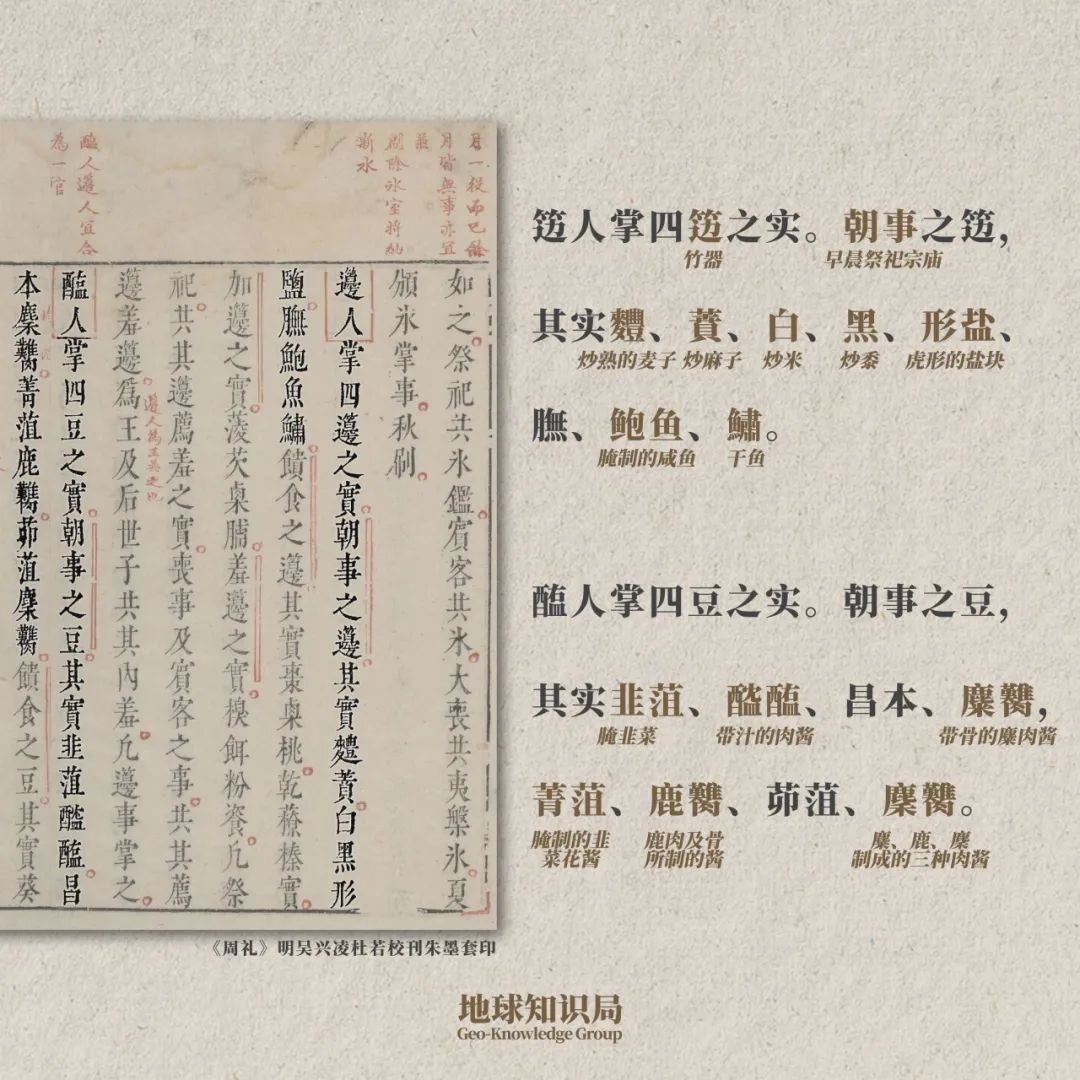 月一役而已餘
月皆無事亦宜
醢人籩人宜合
為一官
如之祭祀共氷鑑賓客共氷大喪共夷槃氷夏
頒氷掌事秋刷
籩人掌四籩之實朝事之籩其實麷蕡白黑形
鹽膴鮑魚鱐饋食之籩其實棗㮚桃乾䕩榛實
加籩之實蔆芡㮚脯羞籩之實糗餌粉餈凢祭
祀共其籩薦羞之實喪事及賓客之事共其薦
籩羞籩為王及后世子共其內羞凢籩事掌之
醢人掌四豆之實朝事之豆其實韭菹醓醢昌
本麋臡菁菹鹿臡茆菹麇臡饋食之豆其實葵
《周礼》明吴兴凌杜若校刊朱墨套印
笾人掌四笾之实。朝事之笾，
竹器 早晨祭祀宗庙
其实麷、蕡、白、黑、形盐、
炒熟的麦子 炒麻子 炒米 炒黍 虎形的盐块
膴、鲍鱼、鱐。
腌制的咸鱼 干鱼
醢人掌四豆之实。朝事之豆，
其实韭菹、醓醢、昌本、麋臡，
腌韭菜 带汁的肉酱 带骨的麋肉酱
菁菹、鹿臡、茆菹、麇臡。
腌制的韭 鹿肉及骨 麋、鹿、麇
菜花酱 所制的酱 制成的三种肉酱
地球知识局
Geo-Knowledge Group